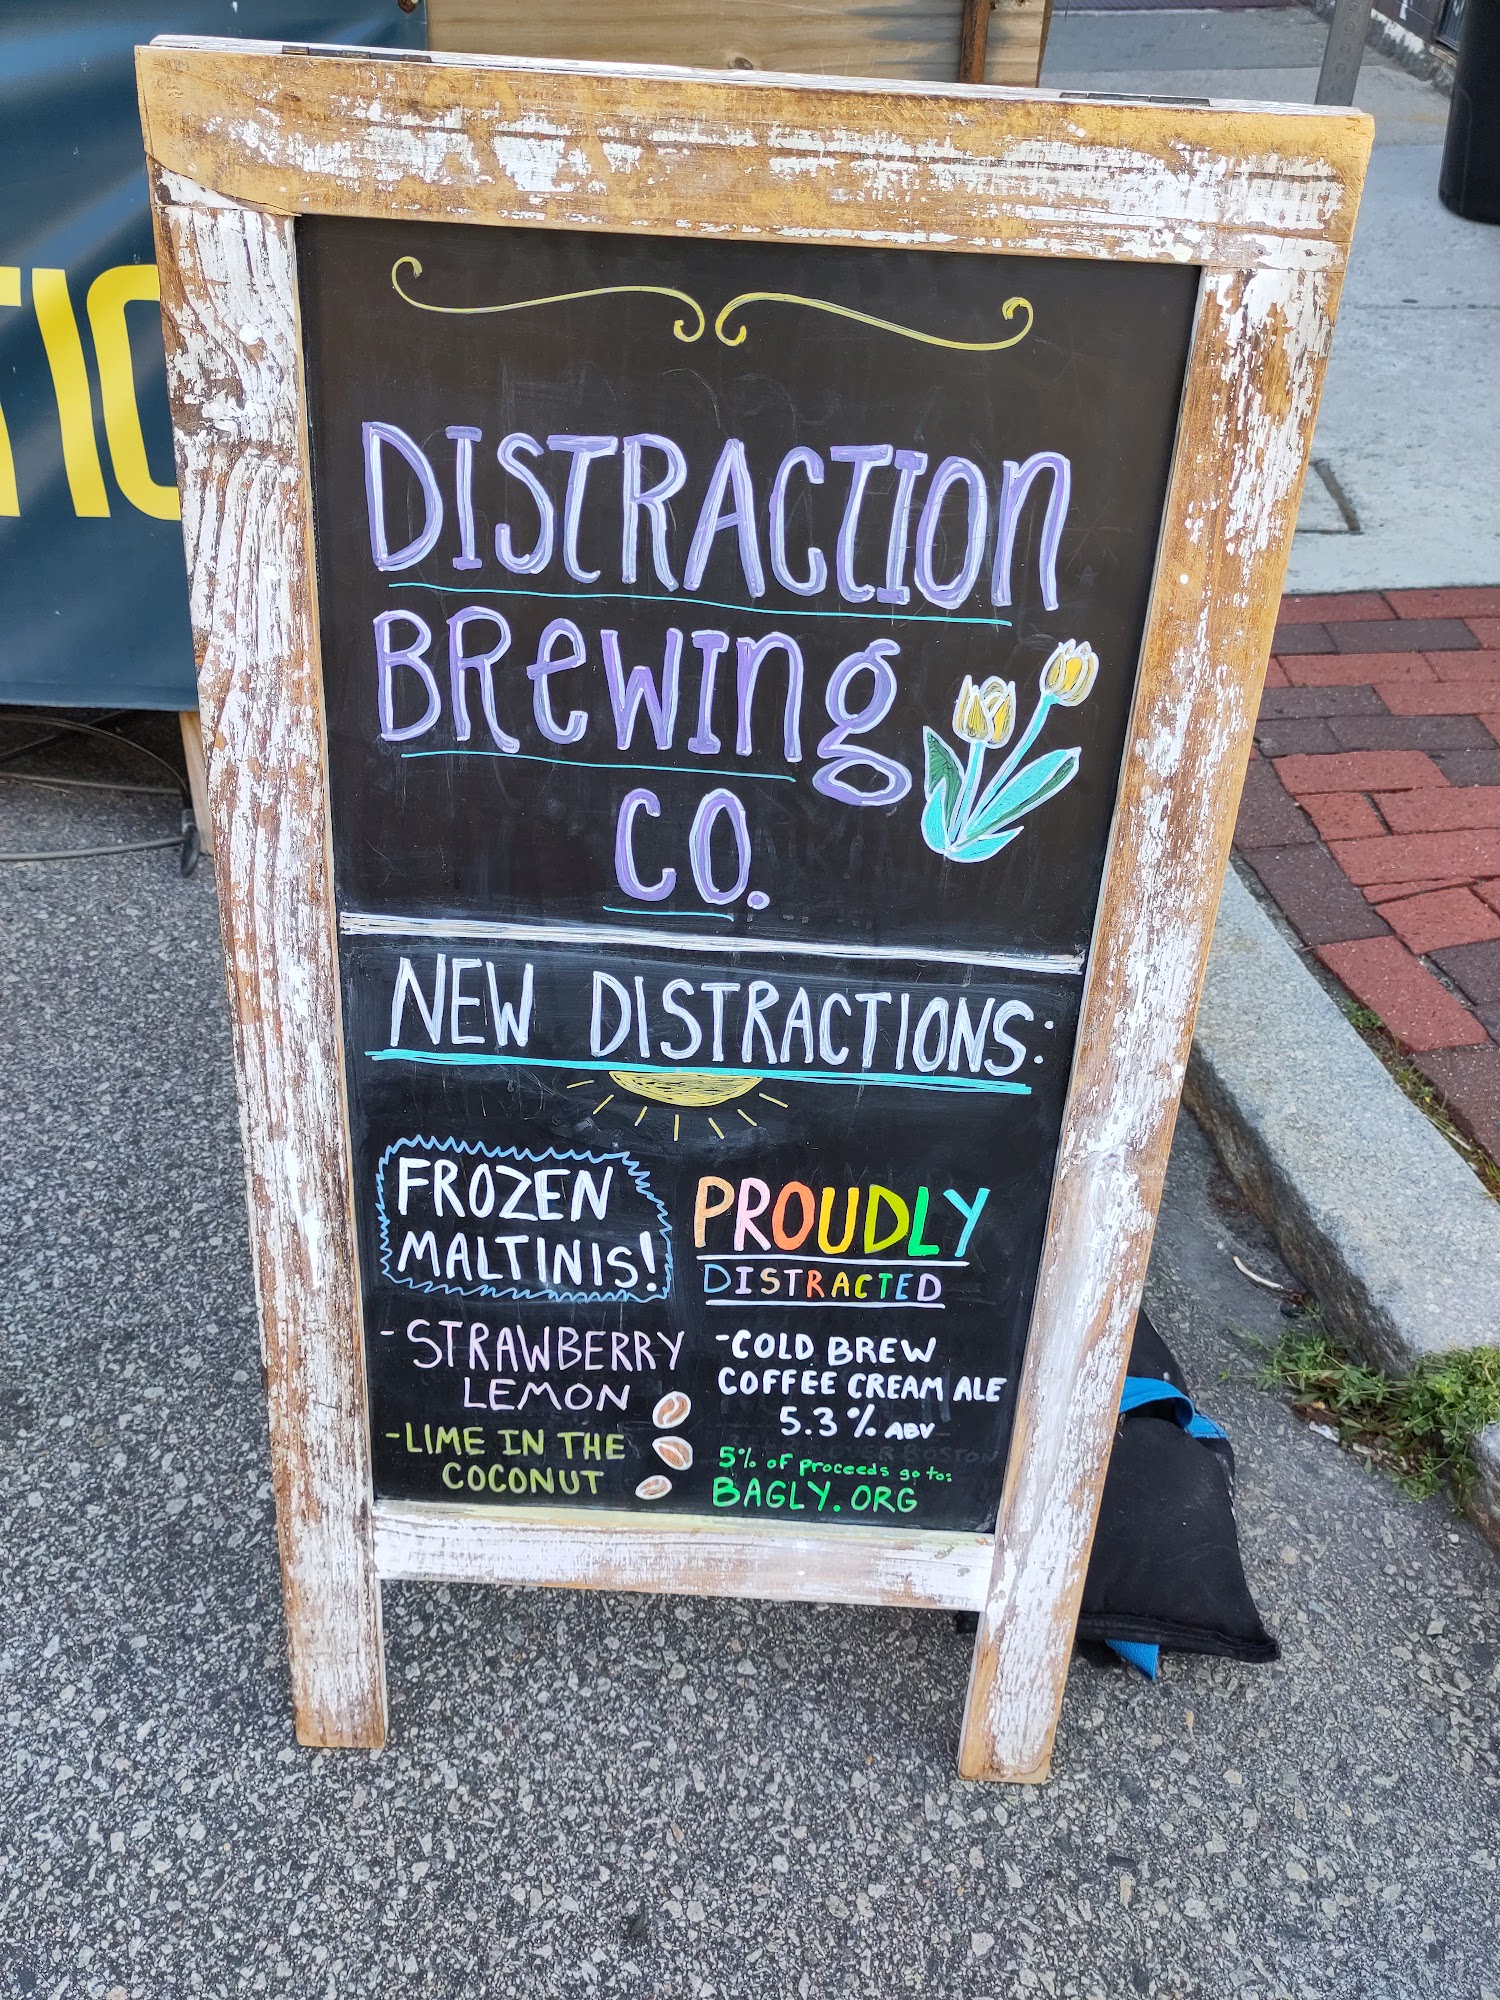 DISTRACTION
BREWING
CO.
NEW DISTRACTIONS:
FROZEN
MALTINIS!
-STRAWBERRY
LEMON
-LIME IN THE
COCONUT
PROUDLY
DISTRACTED
-COLD BREW
COFFEE CREAM ALE
5.3% ABV
5% OF PROCEEDS go to:
BAGLY.ORG